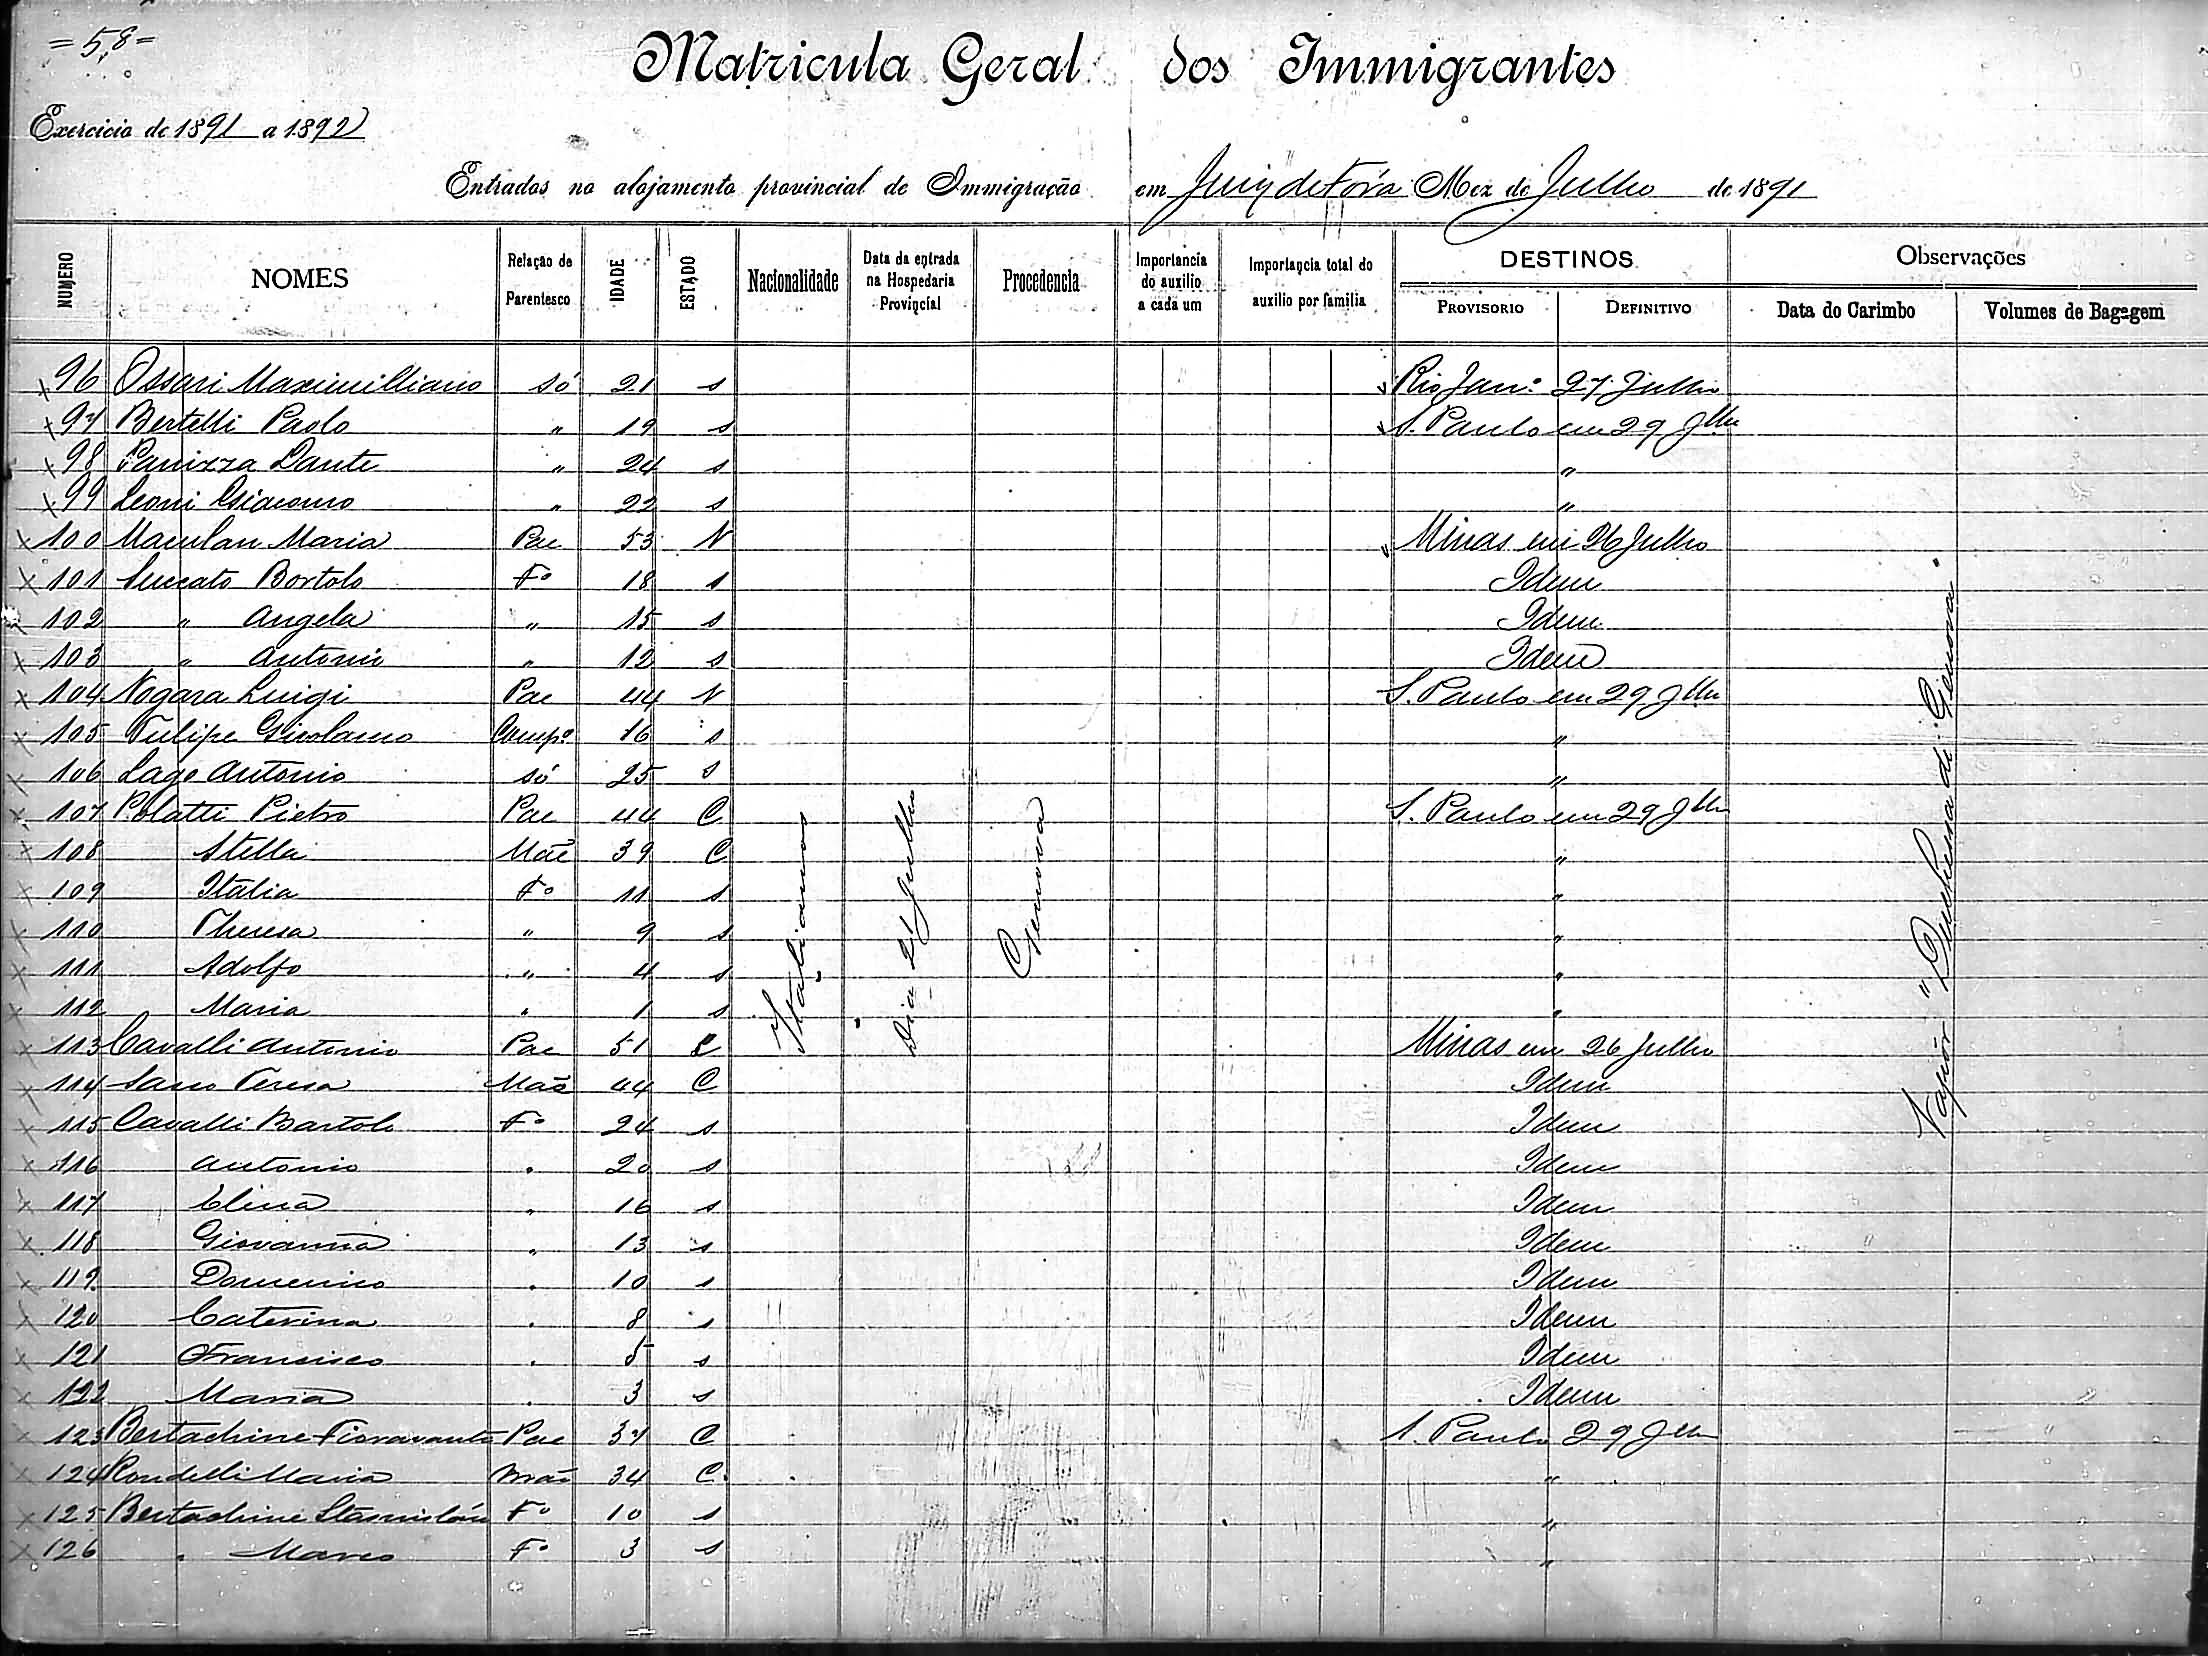 =58=
Matricula Geral dos Immigrantes
Exercicio de 1891 a 1892
Entrados no alojamento provincial de Immigração em Juiz de Fóra Mez de Julho de 1891
NUMERO NOMES Relação de Parentesco IDADE ESTADO Nacionalidade Data da entrada na Hospedaria Provincial Procedencia Importancia do auxilio a cada um Importancia total do auxilio por familia DESTINOS PROVISORIO DEFINITIVO Observações Data do Carimbo Volumes de Bagagem
96 Ossari Maximilliano só 21 s Rio Jan.º 27 Julho
97 Bertelli Paolo " 19 s S. Paulo em 29 Jlho
98 Panizza Dante " 24 s "
99 Leoni Giacomo " 22 s "
100 Maculan Maria Pae 53 V Minas em 26 Julho
101 Luccato Bortolo Fº 18 s Idem
102 " Angela " 15 s Idem
103 " Antonio " 12 s Idem
104 Nogara Luigi Pae 44 V S. Paulo em 29 Jlho
105 Tulipe Girolamo Compº 16 s "
106 Lago Antonio só 25 s "
107 Polatti Pietro Pae 44 C S. Paulo em 29 Jlho
108 Stella Mãe 39 C "
109 Italia Fº 11 s "
110 Theresa " 9 s "
111 Adolfo " 4 s "
112 Maria " 1 s "
113 Cavalli Antonio Pae 51 C Minas em 26 Julho
114 Teresa Mãe 44 C Idem
115 Cavalli Bartolo Fº 24 s Idem
116 Antonio " 20 s Idem
117 Elina " 16 s Idem
118 Giovanna " 13 s Idem
119 Domenico " 10 s Idem
120 Caterina " 8 s Idem
121 Francisco " 5 s Idem
122 Maria " 3 s Idem
123 Bertachine Fioravante Pae 37 C S. Paulo 29 Jlho
124 Rondelli Maria Mãe 34 C "
125 Bertachine Fº 10 s "
126 " Marco Fº 3 s "
Italianos
Dia 21 Julho
Genova
Vapôr "Duchessa di Genova"